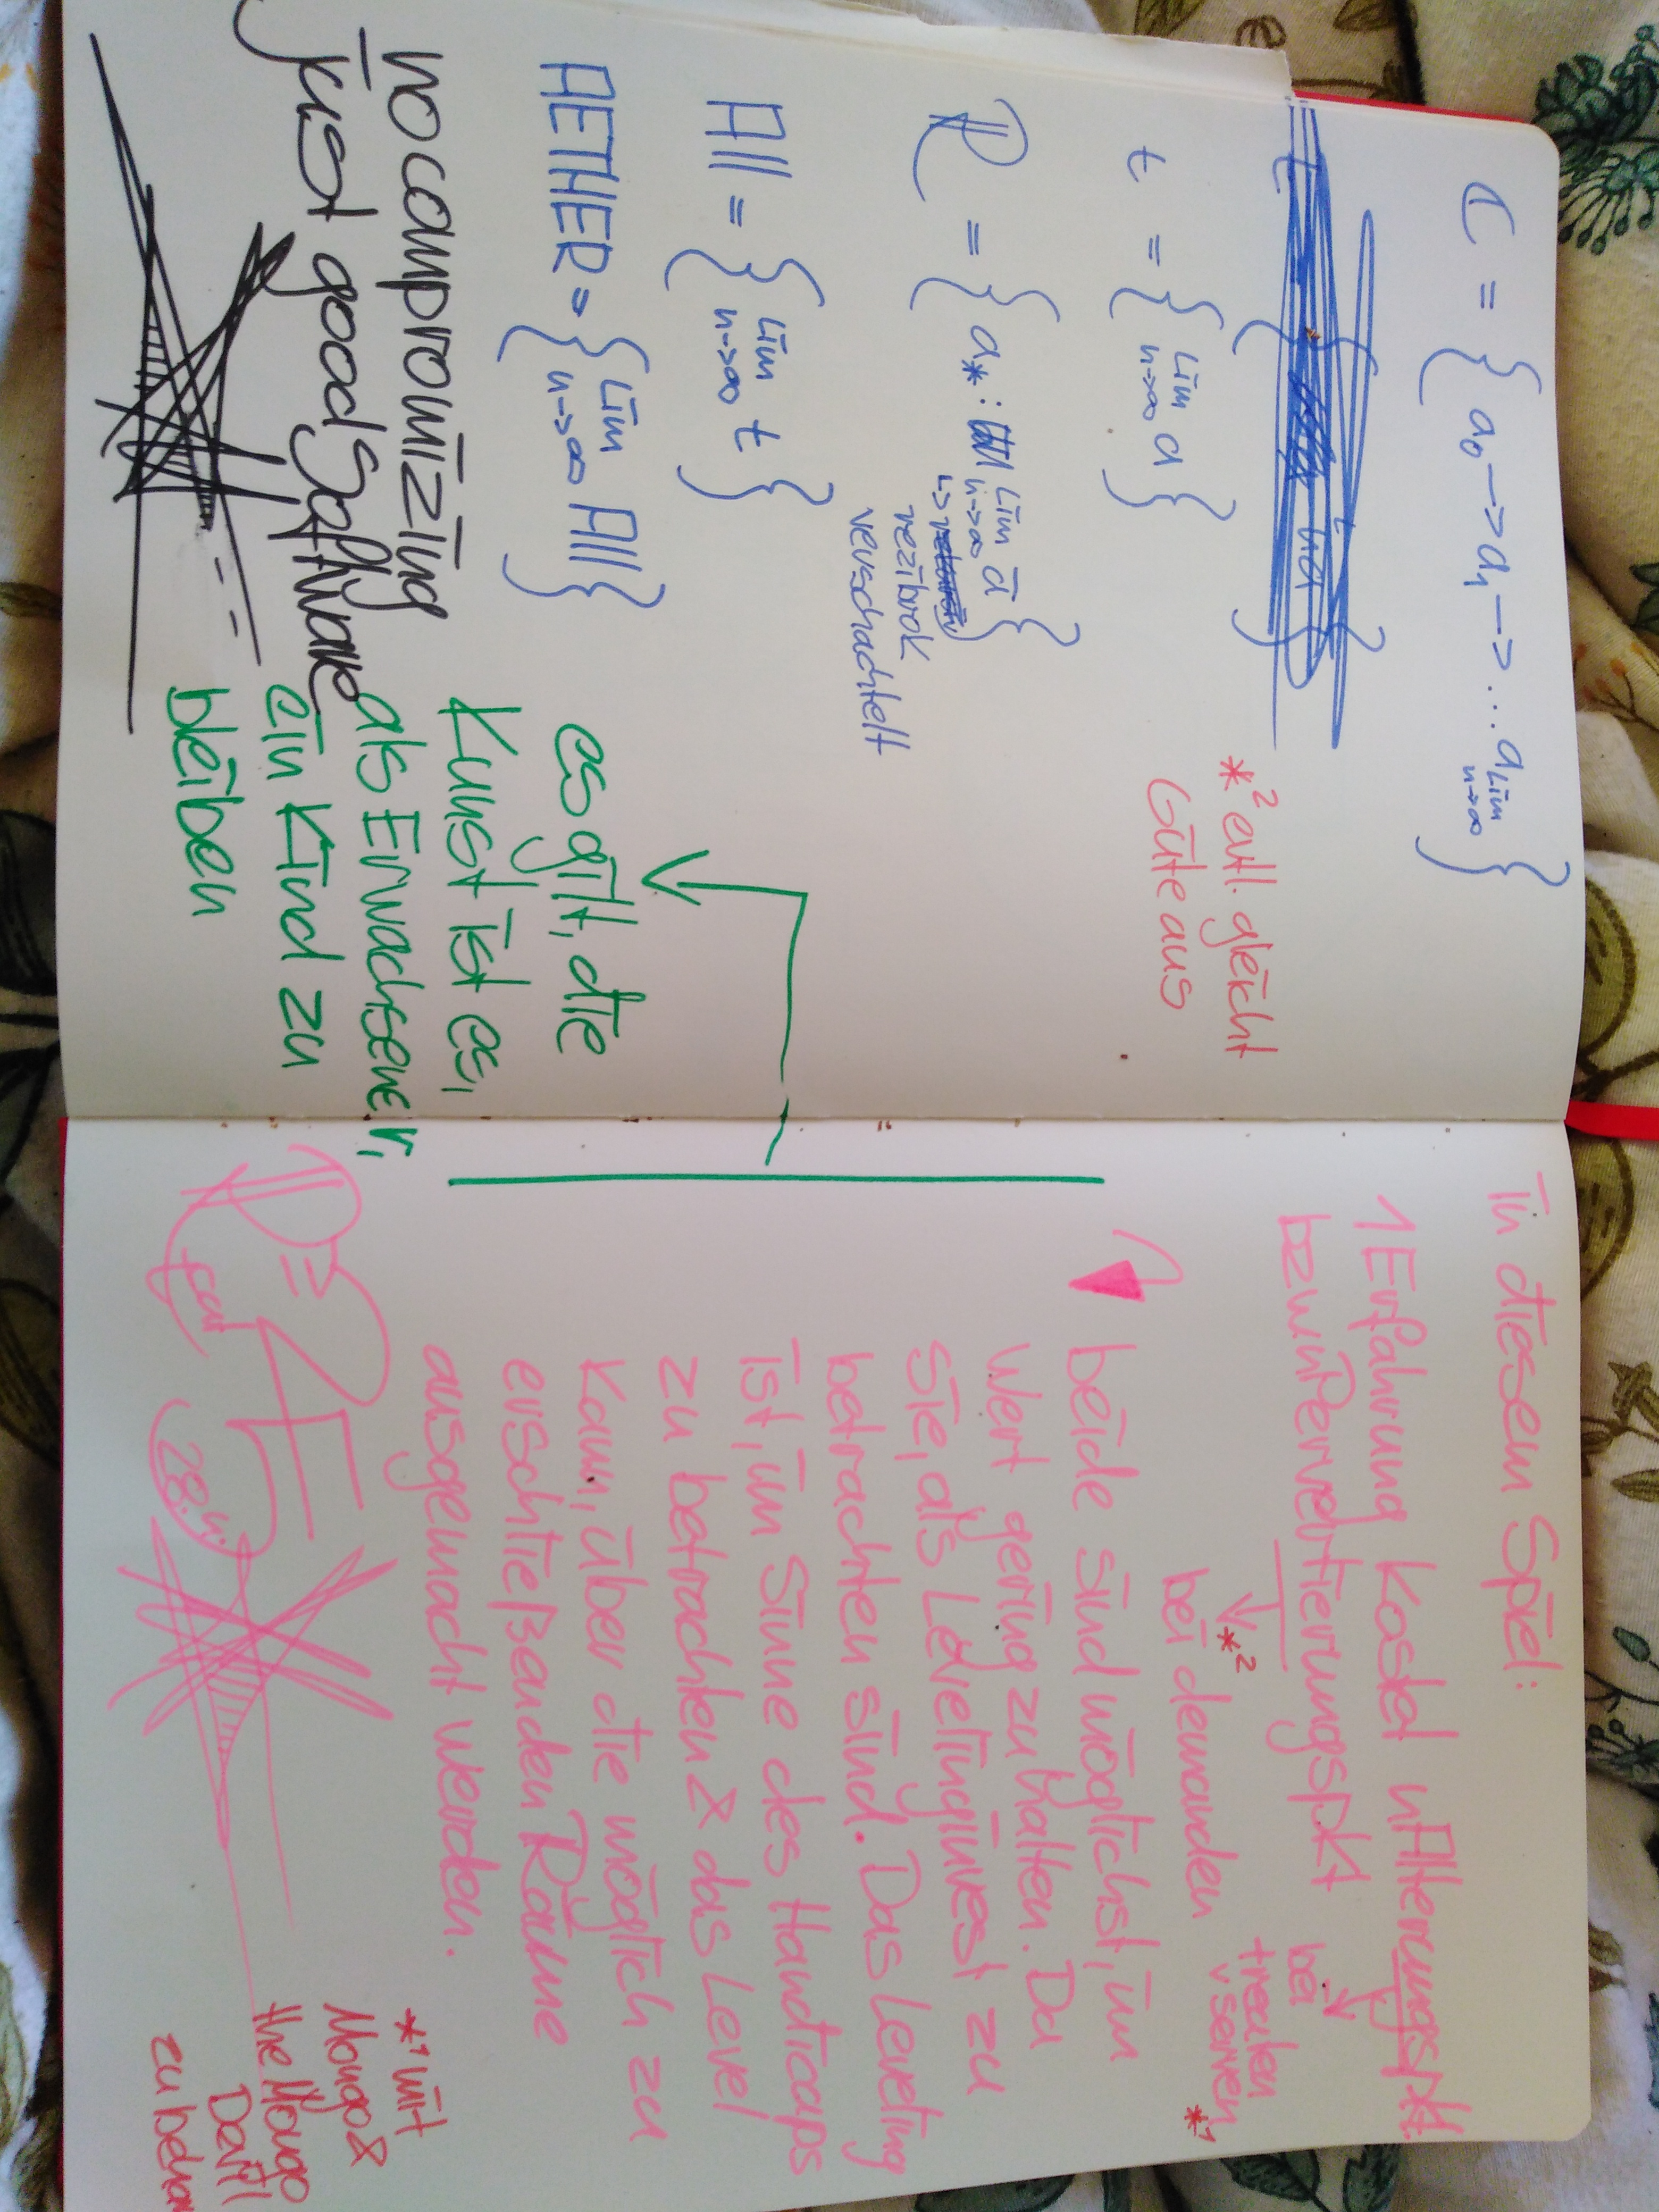 C = { a₀ → a₁ → ... a lim n→∞ }
t = { lim n→∞ a }
*² evtl. gleicht
Güte aus
ℝ = { a* : lim n→∞ a }
rezibrok
verschachtelt
All = { lim n→∞ t }
AETHER = { lim n→∞ All }
nocompromizing
just good Software
es gilt, die
Kunst ist es,
als Erwachsener,
ein Kind zu
bleiben
in diesem Spiel:
1 Erfahrung kostet nAlterungspkt.
bzw nPervertierungspkt
bei
treaten
v servern *¹
*²
bei demanden
beide sind möglichst, im
Wert gering zu halten. Da
sie, als Leveling
betrachten sind. Das Leveling
ist, im Sinne des Handicaps
zu betrachten & das Level
kann, über die möglich zu
erschließenden Räume
ausgemacht werden.
28.
*¹ mit
Mongo &
the Mongo
zu